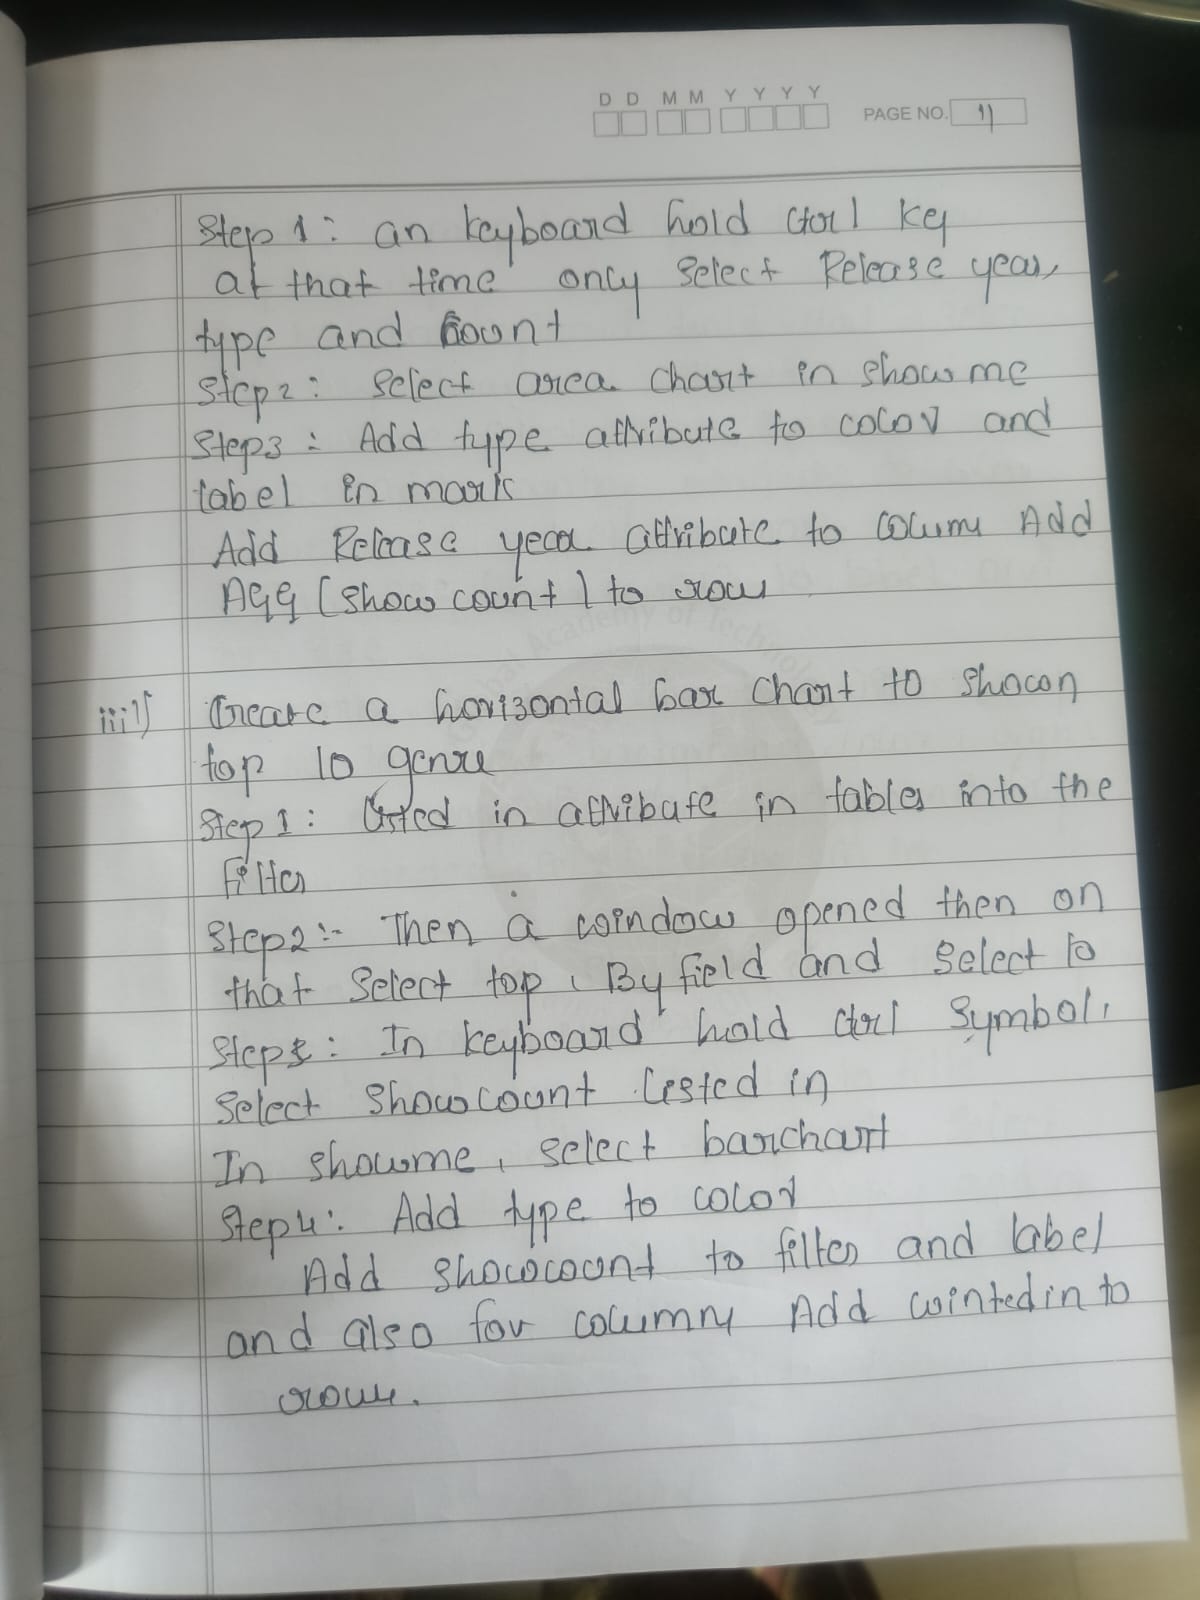 D D M M Y Y Y Y
PAGE NO. 11
Step 1: an keyboard hold ctrl key
at that time only select Release year,
type and count
Step2: Select area chart in show me
Step3: Add type attribute to color and
label in marks
Add Release year attribute to column Add
AGG (show count) to row
iii) Create a horizontal bar chart to shown
top 10 genre
Step 1: listed in attribute in tables into the
filter
Step2:- Then a window opened then on
that select top, By field and select 10
Step3: In keyboard hold ctrl symbol,
Select showcount listed in
In showme, select barchart
Step4: Add type to color
Add showcount to filter and label
and also for column Add in to
row.